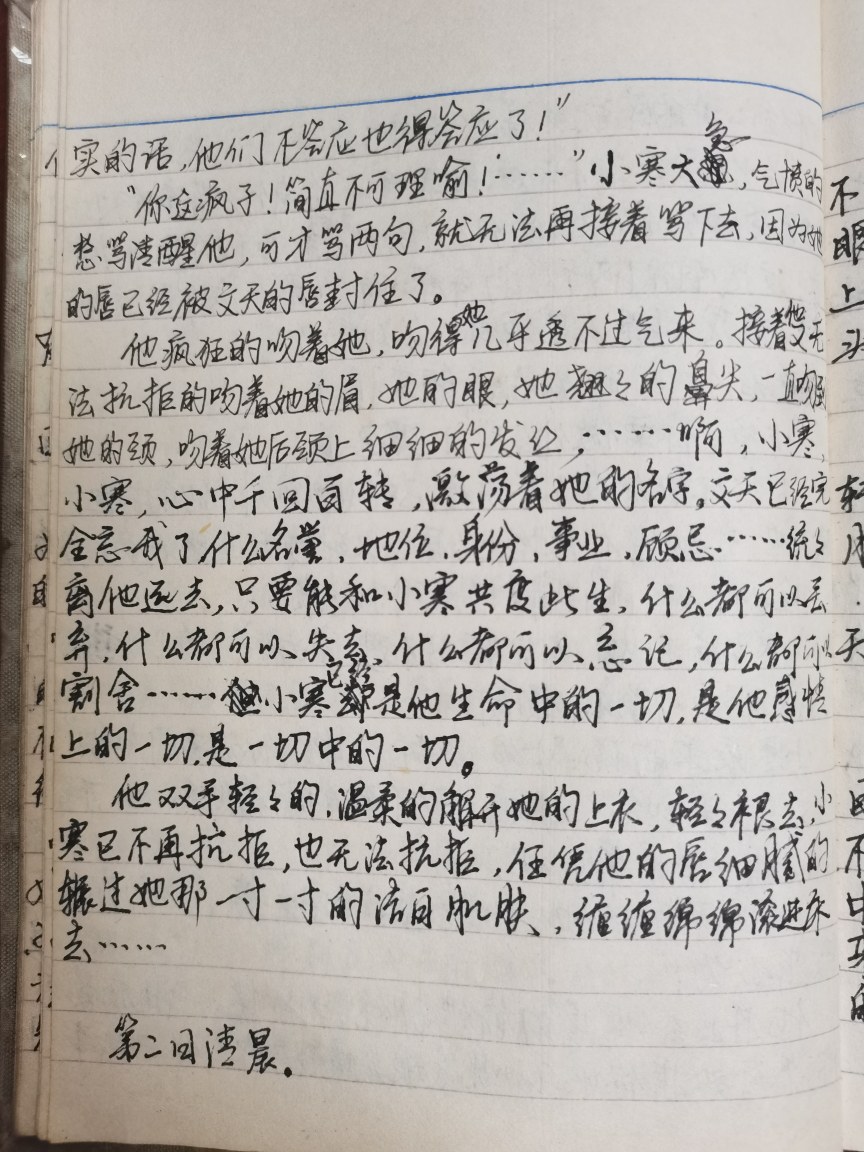 实的话，他们不答应也得答应了！”
“你这疯子！简直不可理喻！……”小寒大急，气愤的
想骂清醒他，可才骂两句，就无法再接着骂下去，因为她
的唇已经被文天的唇封住了。
他疯狂的吻着她，吻得她几乎透不过气来。接着他又无
法抗拒的吻着她的眉，她的眼，她翘々的鼻尖，一直吻到
她的颈，吻着她后颈上细细的发丝，……啊，小寒，
小寒，心中千回百转，激荡着她的名字。文天已经完
全忘我了，什么名誉，地位，身份，事业，顾忌……统々
离他远去，只要能和小寒共度此生，什么都可以丢
弃，什么都可以失去，什么都可以忘记，什么都可以
割舍……小寒已经是他生命中的一切，是他感情
上的一切，是一切中的一切。
他双手轻々的，温柔的解开她的上衣，轻々褪去，小
寒已不再抗拒，也无法抗拒，任凭他的唇细腻的
辗过她那一寸一寸的洁白肌肤，缠缠绵绵滚进床
去……
第二日清晨。